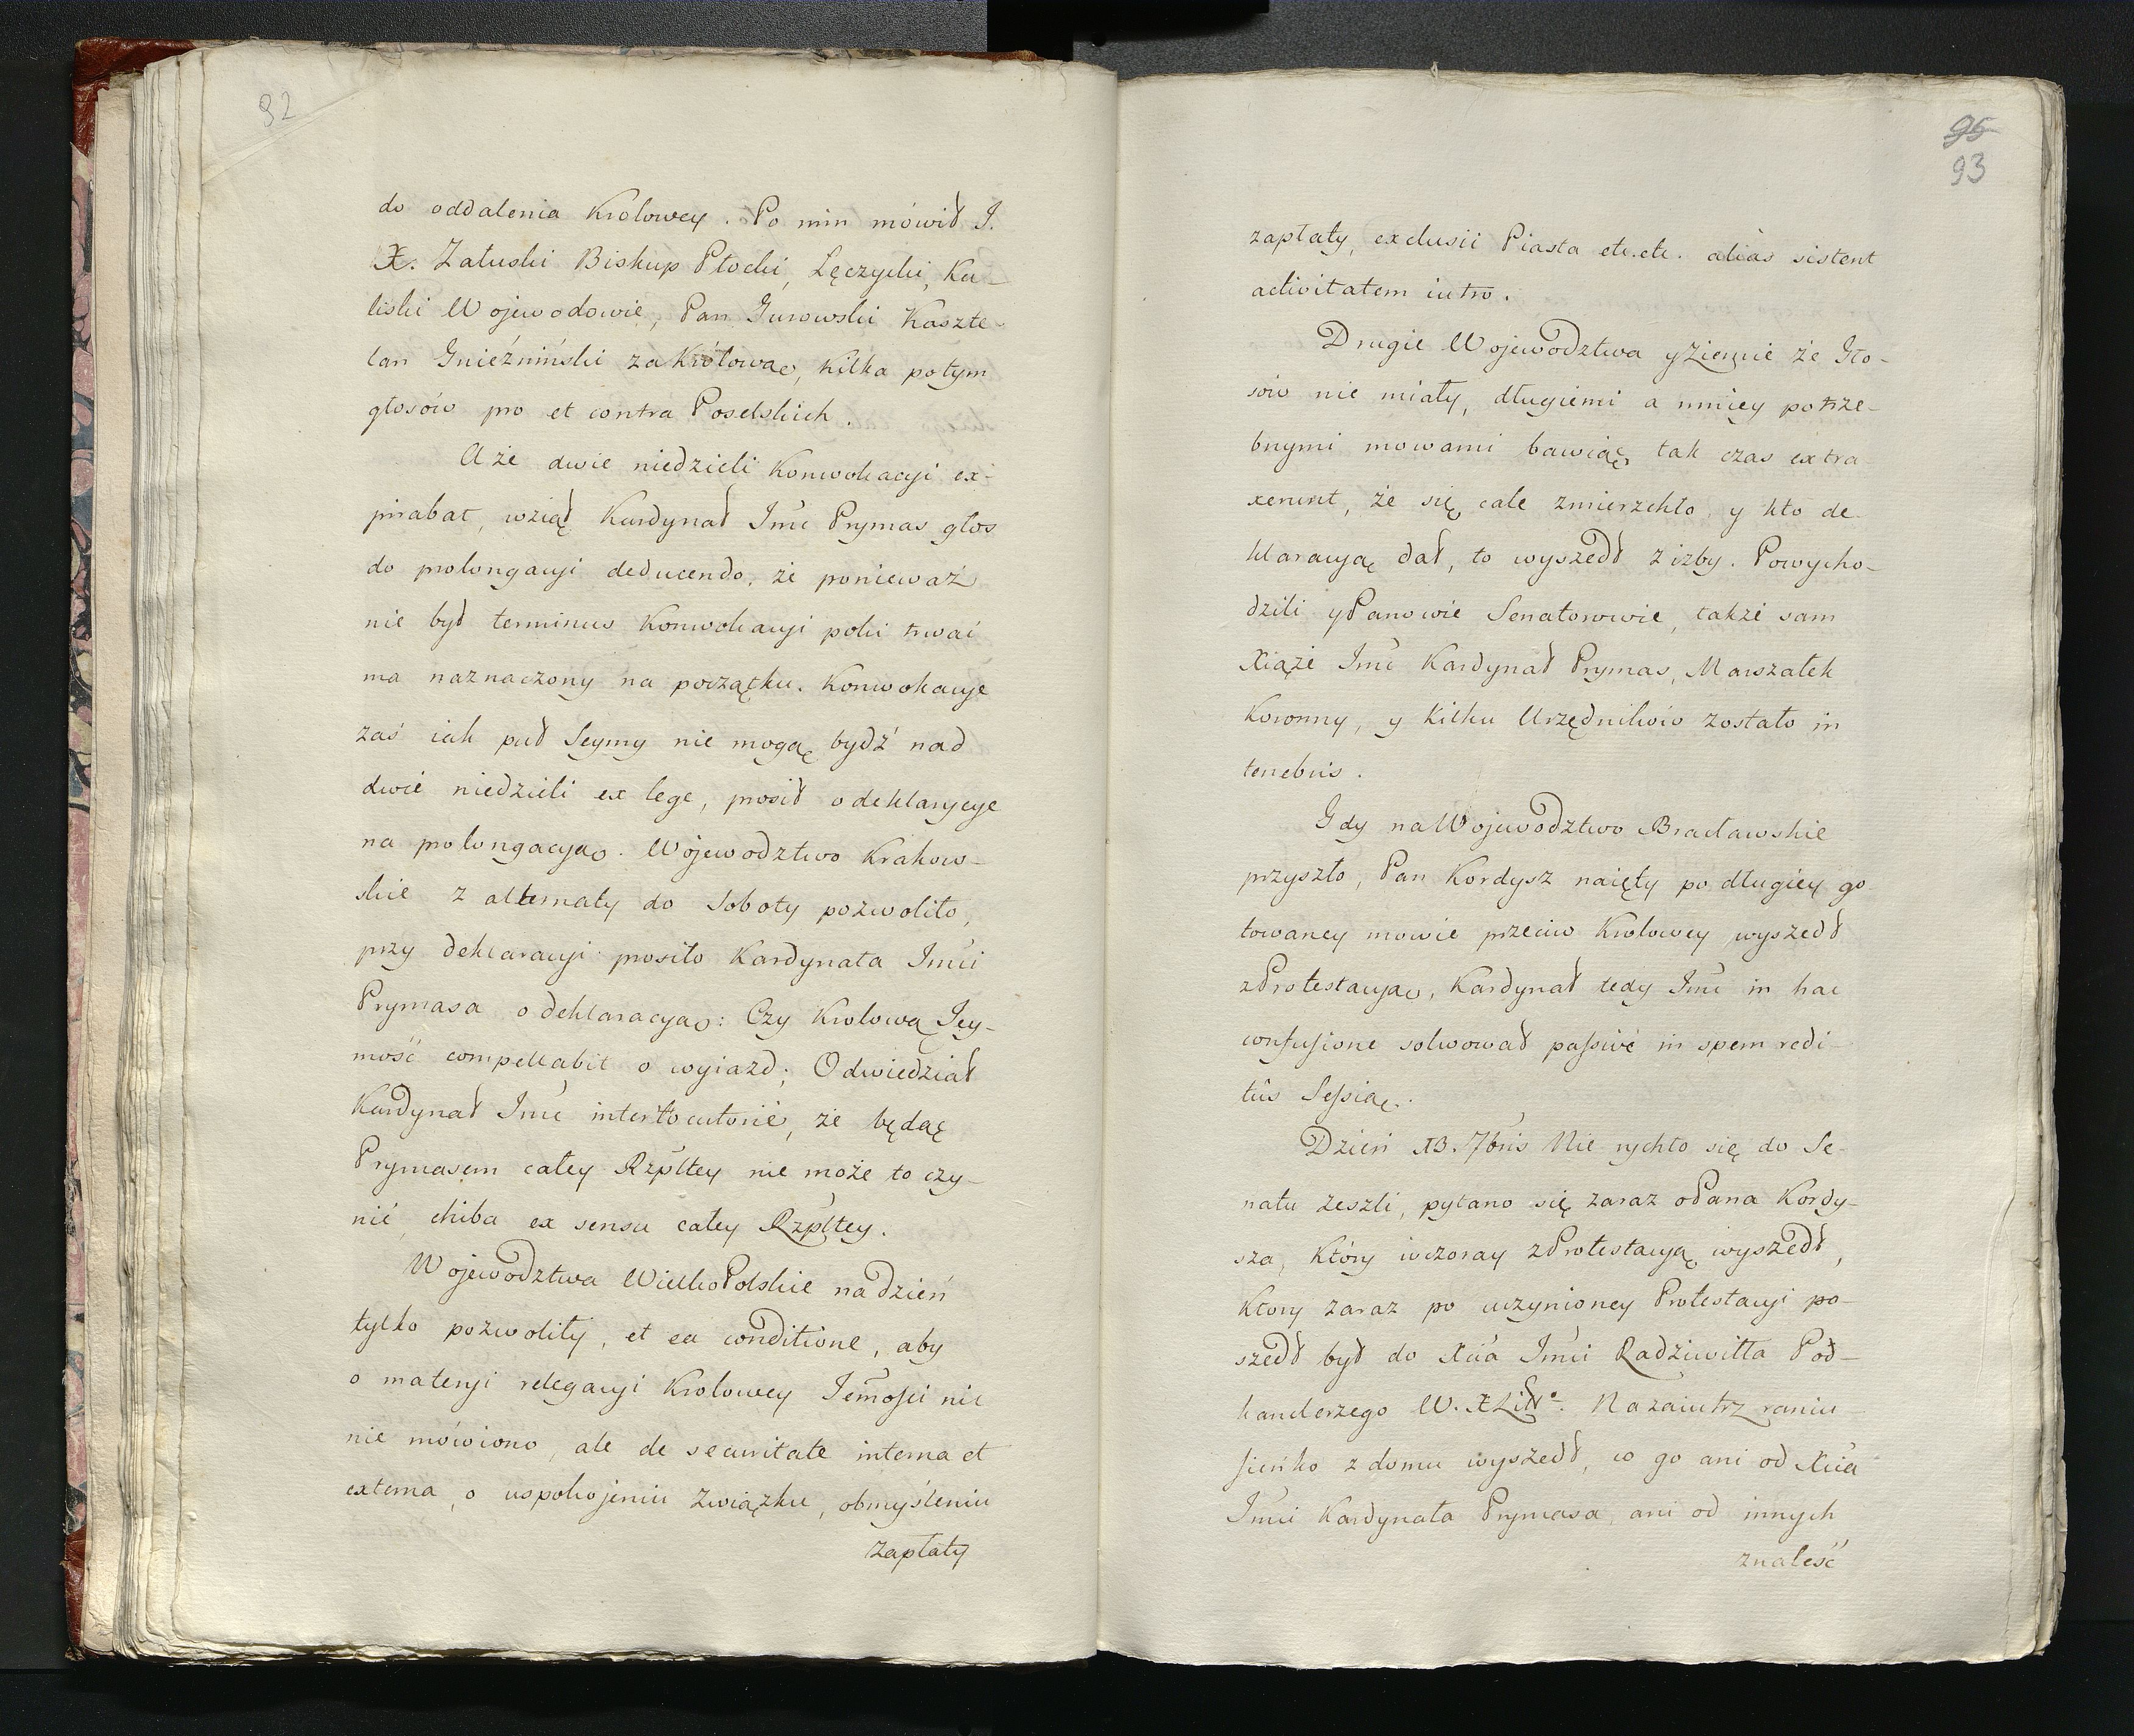 92
do oddalenia Krolowey. Po nim mówił J.
X. Załuski Biskup Płocki, Łęczycki, Ka-
liski Wojewodowie, Pan Gurowski Kaszte-
lan Gnieźniński za Królową, kilka potym
głosów pro et contra Poselskich.
A że dwie niedzieli Konwokacyi ex-
pirabat, wziął Kardynał Jmć Prymas głos
do prolongacyi deducendo, że ponieważ
nie był terminus Konwokacyi poki trwać
ma naznaczony na początku. Konwokacye
zaś iak puł Seymy nie mogą bydź nad
dwie niedzieli ex lege, prosił o deklaracye
na prolongacyą. Wojewodztwo Krakow-
skie z alternaty do Soboty pozwoliło,
przy deklaracyi prosiło Kardynała Jmći
Prymasa o deklaracyą: Czy Krolową Jey-
mość compellabit o wyiazd; Odwiedział
Kardynał Jmć interlocutorié, że będąc
Prymasem całey Rzpltey nie może to czy-
nić, chiba ex sensu całey Rzpltey.
Wojewodztwa WielkoPolskie na dzień
tylko pozwoliły, et ea conditione, aby
o materyi relegacyi Krolowey Jemości nic
nie mówiono, ale de securitate interna et
externa, o uspokojeniu Związku, obmyśleniu
zapłaty
95
93
zapłaty, exclusii Piasta etc. etc. alias sistent
activitatem iutro.
Drugie Wojewodztwa y Ziemie że Gło-
sów nie miały, długiemi a mniey potrze-
bnymi mowami bawiąc, tak czas extra
xerunt, że się cale zmierzchło, y kto de
klaracyą dał, to wyszedł z izby. Powycho-
dzili y Panowie Senatorowie, także sam
Xiąże Jmć Kardynał Prymas, Marszałek
Koronny, y kilku Urzędników zostało in
tenebris.
Gdy na Wojewodztwo Bracławskie
przyszło, Pan Kordysz naięty po długiey go
towaney mowie przeciw Krolowey wyszedł
z Protestacyą, Kardynał tedy Jmć in hac
confusione solwował passivé in spem redi-
tûs Sessią.
Dzień 13. 7bris Nie rychło się do Se-
natu zeszli, pytano się zaraz o Pana Kordy-
sza, który wczoray z Protestacyą wyszedł,
ktory zaraz po uczynioney Protestacyi po-
szedł był do Xcia Jmći Radziwiłła Pod-
kanclerzego W. X Litt°. Nazaiutrz raniu
sieńko z domu wyszedł, co go ani od Xcia
Jmći Kardynała Prymasa, ani od innych
znaleść